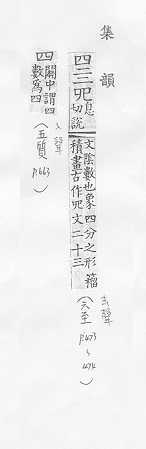 集韻
四亖𦉭
息
切說
文陰數也象四分之形籀
積畫古作𦉭文二十三
去聲
(六至 p.473~474)
四
關中謂四
數為四
入聲
(五質 p.663)